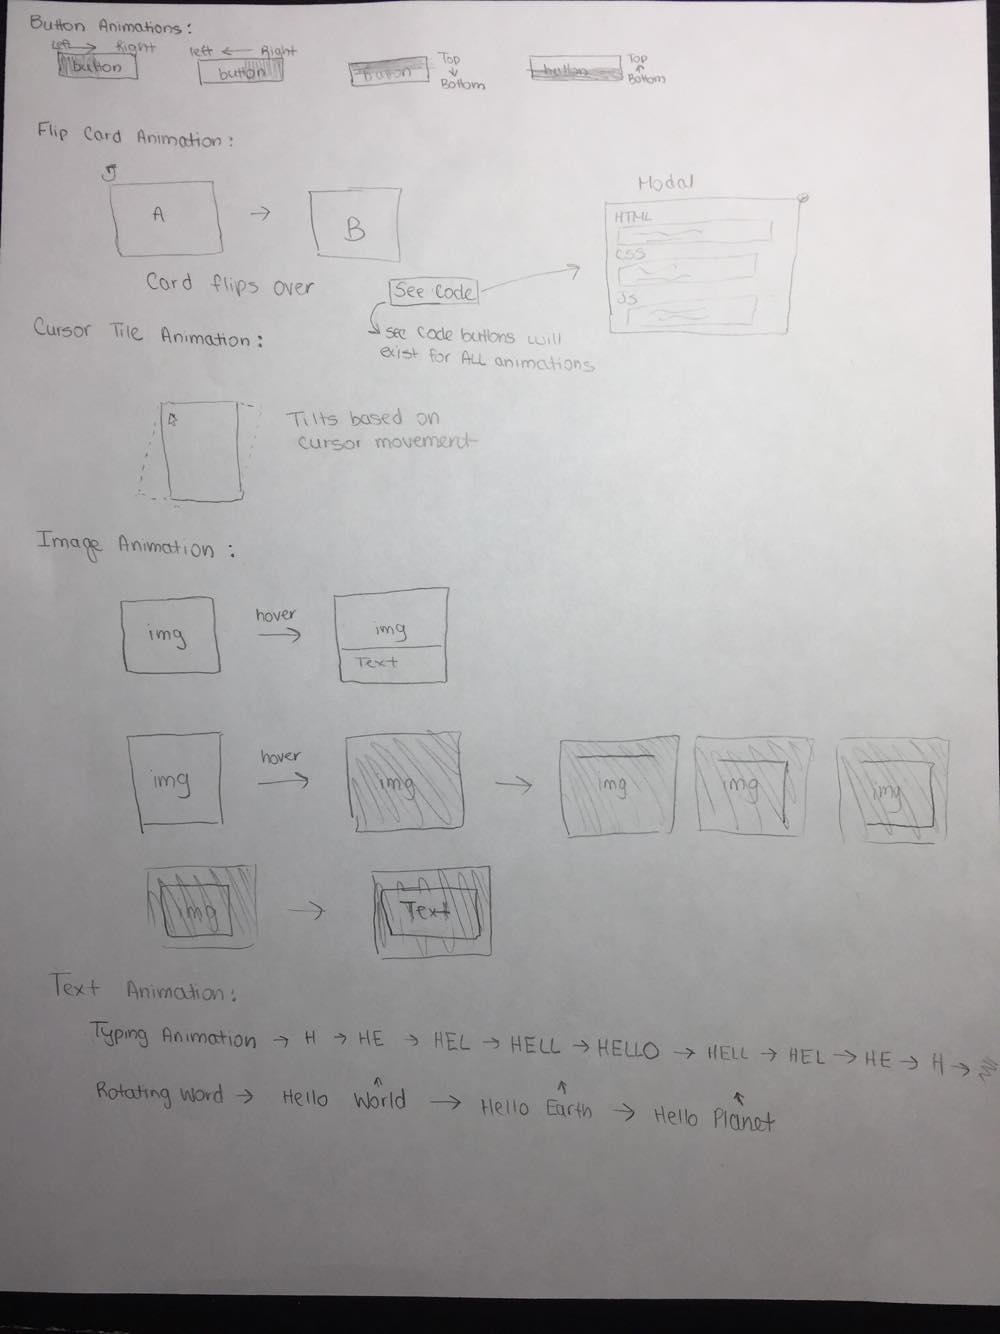 Button Animations:
Left → Right
left ← Right
button
button
Button
Top
↓
Bottom
button
Top
↑
Bottom
Flip Card Animation:
A → B
Card flips over
See Code
see code buttons will
exist for ALL animations
Modal
HTML
CSS
JS
Cursor Tile Animation:
Tilts based on
cursor movement
Image Animation:
img
hover
→
img
Text
img
hover
→
img
→
img
img
img
img
→
Text
Text Animation:
Typing Animation → H → HE → HEL → HELL → HELLO → HELL → HEL → HE → H →
Rotating Word → Hello World → Hello Earth → Hello Planet